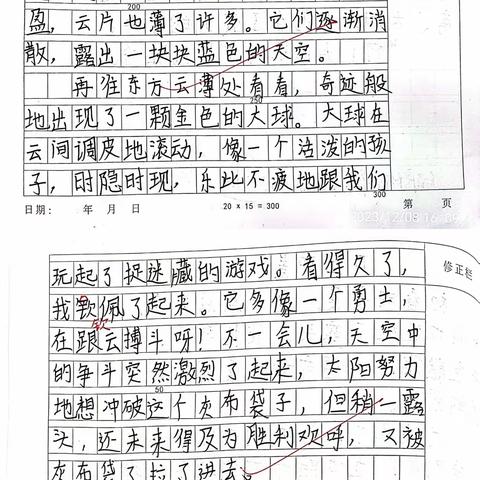 盈，云片也薄了许多。它们逐渐消
200
散，露出一块块蓝色的天空。
再往东方云薄处看看，奇迹般
地出现了一颗金色的大球。大球在
250
云间调皮地滚动，像一个活泼的孩
子，时隐时现，乐此不疲地跟我们
300
日期： 年 月 日 20 x 15 = 300 第 页
2023/12/08 16:09
玩起了捉迷藏的游戏。看得久了，
修正栏
我钦佩了起来。它多像一个勇士，
钦
在跟云搏斗呀！不一会儿，天空中
的争斗突然激烈了起来，太阳努力
50
地想冲破这个灰布袋子，但稍一露
头，还未来得及为胜利欢呼，又被
灰布袋子拉了进去。